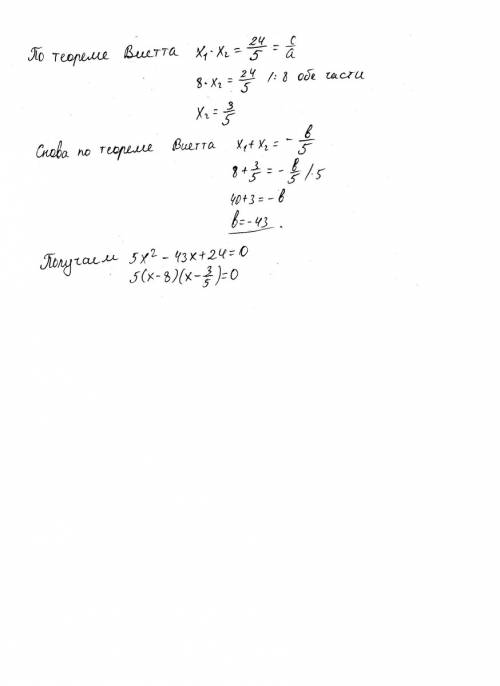 По теореме Виетта x₁·x₂ = 24/5 = c/a
8·x₂ = 24/5 /:8 обе части
x₂ = 3/5
Снова по теореме Виетта x₁+x₂ = - b/5
8+3/5 = - b/5 /·5
40+3 = - b
b = -43.
Получаем 5x² - 43x + 24 = 0
5(x-8)(x-3/5) = 0